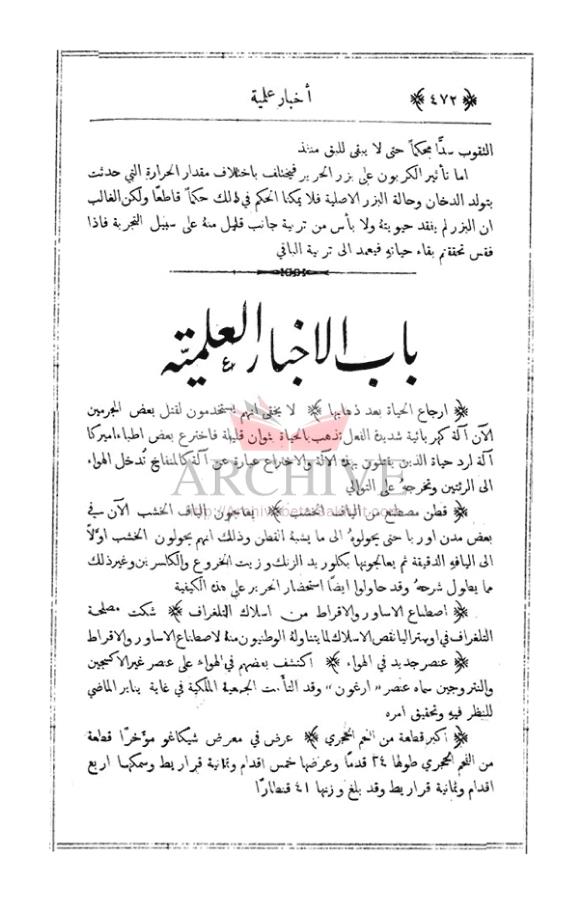 ﴿ ٤٧٢ ﴾ أخبار علمية
الثقوب سدًّا محكمًا حتى لا يبقى للبق منفذ
اما تأثير الكربون على بزر الحرير فيختلف باختلاف مقدار الحرارة التي حدثت
بتولد الدخان وحالة البزر الاصلية فلا يمكنا الحكم في ذلك حكمًا قاطعًا ولكن الغالب
ان البزر لم يفقد حيويتهُ ولا بأس من تربية جانب قليل منهُ على سبيل التجربة فاذا
فقس تحققتم بقاء حياتهِ فيعمد الى تربية الباقي
باب الاخبار العلميّة
﴿ ارجاع الحياة بعد ذهابها ﴾ لا يخفى انهم يستخدمون لقتل بعض المجرمين
الآن آلة كهربائية شديدة الفعل تذهب بالحياة بثوان قليلة فاخترع بعض اطباء اميركا
آلة لرد حياة الذين يقتلون بهذه الآلة والاختراع عبارة عن آلة كالمنفاخ تُدخل الهواء
الى الرئتين وتخرجهُ على التوالي
ARCHIVE
http://Archivebeta.Sakhrit.com
﴿ قطن مصطنع من الياف الخشب ﴾ يعالجون الياف الخشب الآن في
بعض مدن اوربا حتى يحولوهُ الى ما يشبه القطن وذلك انهم يحولون الخشب اولًا
الى اليافهِ الدقيقة ثم يعالجونها بكلوريد الزنك وزيت الخروع والكاسرين وغير ذلك
مما يطول شرحهُ وقد حاولوا ايضًا استحضار الحرير على هذه الكيفية
﴿ اصطناع الاساور والاقراط من اسلاك التلغراف ﴾ شكت مصلحة
التلغراف في اوستراليا نقص الاسلاك لما يتناولهُ الوطنيون منهُ لاصطناع الاساور والاقراط
﴿ عنصر جديد في الهواء ﴾ اكتشف بعضهم في الهواء على عنصر غير الاكسجين
والنتروجين سماه عنصر «ارغون» وقد التأمت الجمعية الملكية في غاية يناير الماضي
للنظر فيهِ وتحقيق امره
﴿ اكبر قطعة من الفحم الحجري ﴾ عرض في معرض شيكاغو مؤخرًا قطعة
من الفحم الحجري طولها ٢٤ قدمًا وعرضها خمس اقدام وثمانية قراريط وسمكها اربع
اقدام وثمانية قراريط وقد بلغ وزنها ٤١ قنطارًا